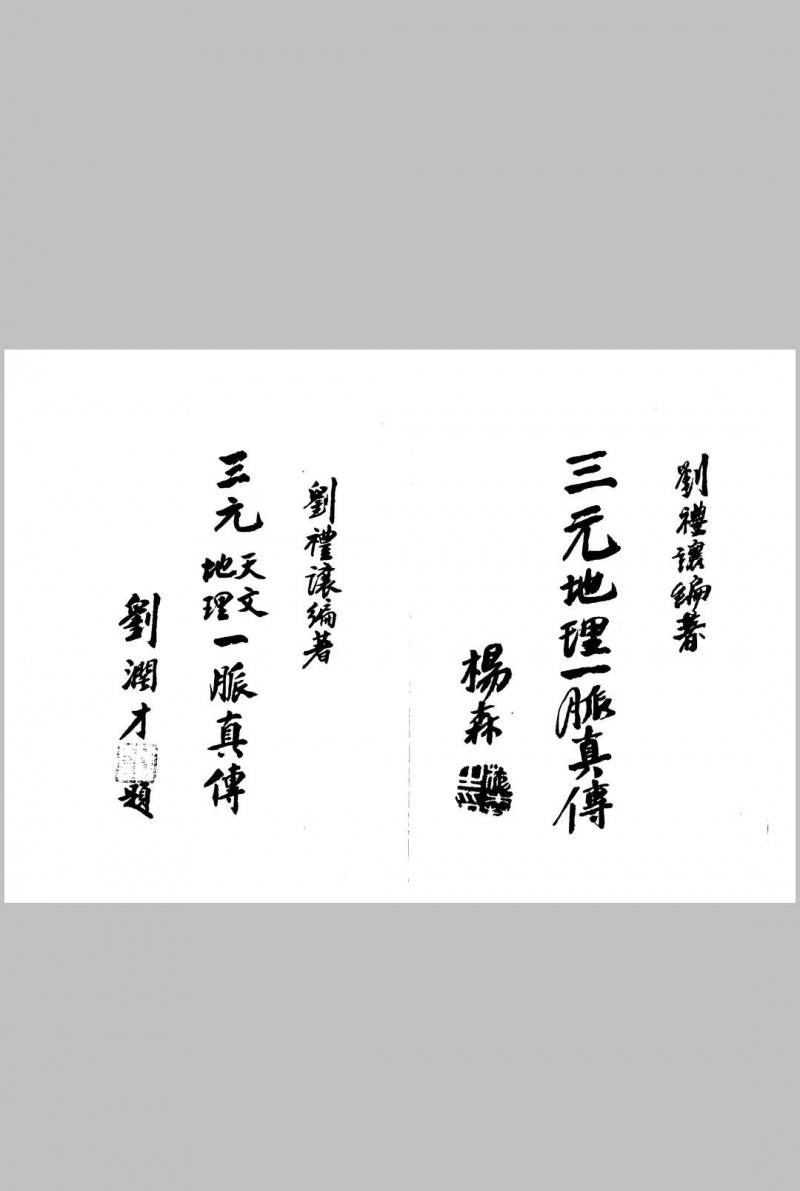 劉禮讓編著
三元地理一脈真傳
楊森
劉禮讓編著
三元天文地理一脈真傳
劉潤才題